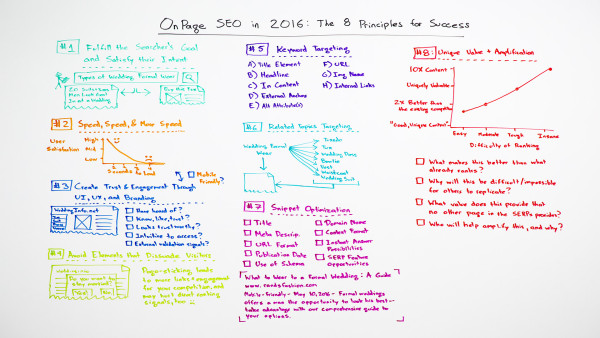 OnPage SEO in 2016: The 8 Principles for Success
#1 Fulfill the Searcher's Goal
and Satisfy their Intent
Types of Wedding Formal Wear
#2 Speed, Speed, & More Speed
User
Satisfaction
High
Mid
Low
Seconds to Load
Mobile
Friendly?
#3 Create Trust & Engagement Through
UI, UX, and Branding
WeddingInfo.net
Have heard of?
Know, like, trust?
Looks trustworthy?
Intuitive to access?
External validation signals?
#4 Avoid Elements that Dissuade Visitors
Do you want to
stay informed?
Yes!
No!
Pogo-sticking leads
to more later engagement
for your competitor, and
may hurt direct ranking
signals, too
#5 Keyword Targeting
A) Title Element
B) Headline
C) In Content
D) External Anchors
E) Alt Attribute(s)
F) URL
G) Img Name
H) Internal Links
#6 Related Topics Targeting
Wedding Formal
Wear
Tuxedo
Tie
Wedding Dress
Bowtie
Vest
Wedding Suit
#7 Snippet Optimization
Title
Meta Descrip.
URL Format
Publication Date
Use of Schema
Domain Name
Content Format
Instant Answer
Possibilities
SERP Feature
Opportunities
What to Wear to a Formal Wedding: A Guide
www.randsfashion.com
Mobile-Friendly - May 10, 2016 - Formal weddings
offer a man the opportunity to look his best -
take advantage with our comprehensive guide to
your options.
#8: Unique Value + Amplification
10X Content
Uniquely Valuable
2X Better than
the existing competitor
"Good, Unique Content"
Easy
Moderate
Tough
Insane
Difficulty of Ranking
What makes this better than what
already ranks?
Why will this be difficult/impossible
for others to replicate?
What value does this provide that
no other page in the SERPs provides?
Who will help amplify this, and why?